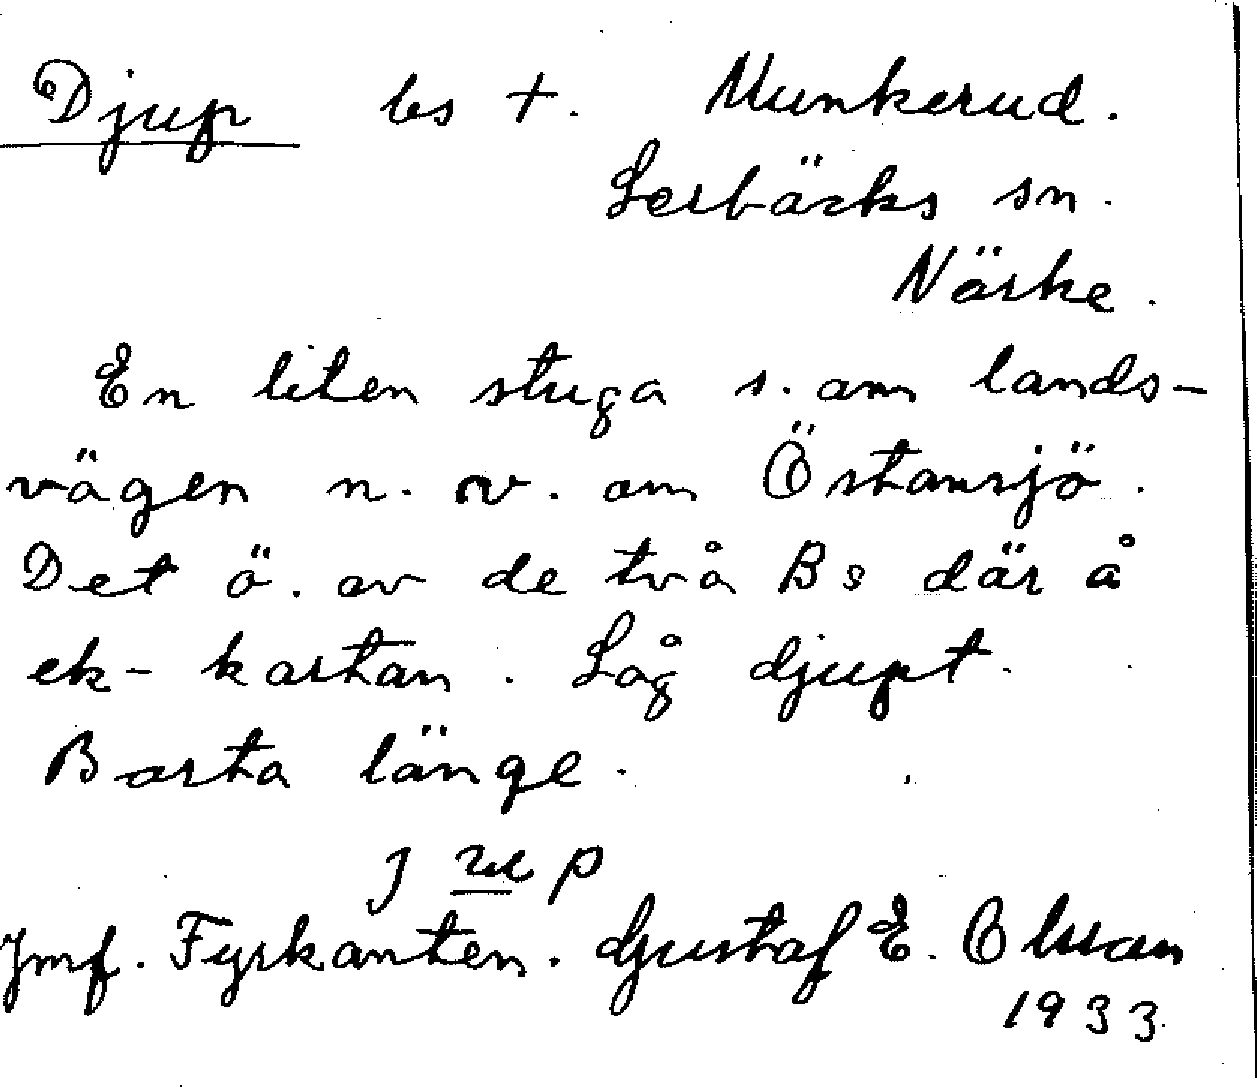 Djup ls +. Munkerud.
Lerbäcks sn.
Närke.
En liten stuga s. om lands-
vägen n. v. om Östansjö.
Det ö. av de två Bs där å
ek-kartan. Låg djupt.
Borta länge.
Jmf. Fyrkanten. Gustaf E. Olsson
1933